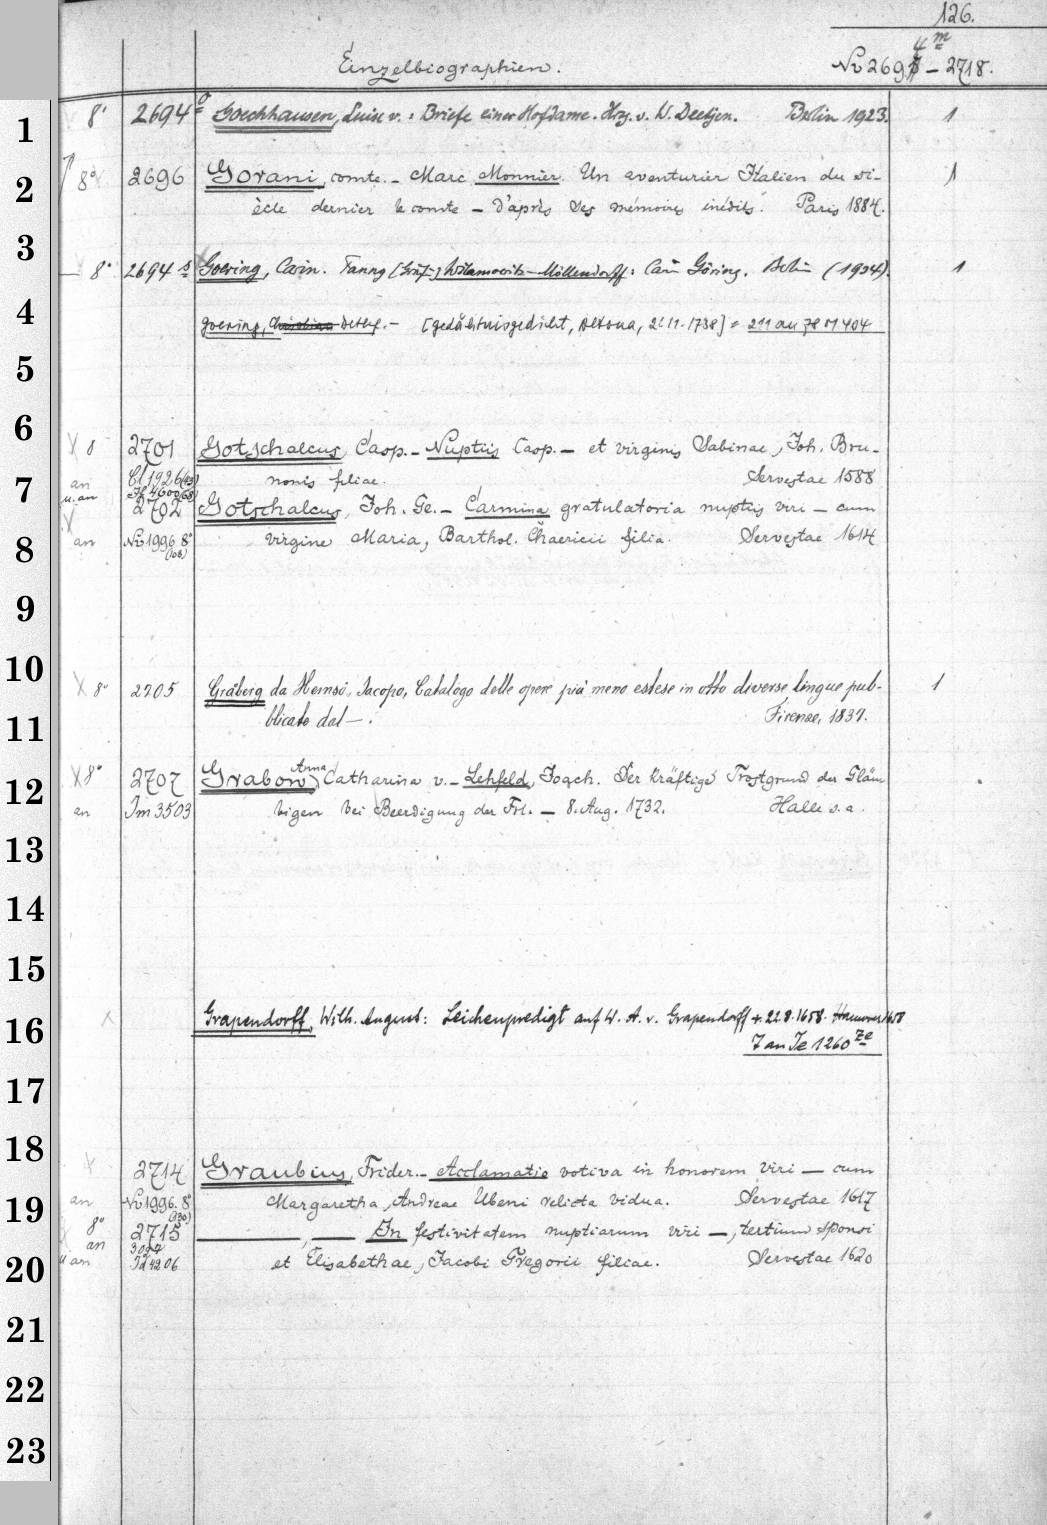 126.
4 m
Einzelbiographien. Nv 2691 – 2718.
1 8° 2694 o Goechhausen, Luise v.: Briefe einer Hofdame. Hrg. v. W. Deetjen. Berlin 1923. 1
2 8° 2696 Gorani, comte. – Marc Monnier. Un aventurier Italien du si-
ècle dernier le comte – d'après ses mémoires inédits. Paris 1884. 1
3 8° 2694 s Goering, Carin. Fanny [Gräf.] Wilamowitz-Möllendorff: Carin Göring. Berlin (1934). 1
4 Goering, Detlef. – [Gedächtnisgedicht, Altona, 21.11.1738] = 211 an 78 M 404
5
6 8 2701 Gotschalcus, Casp. – Nuptiis Casp. – et virginis Sabinae, Joh. Bru-
7 an Cl 1926 (43) nonis filiae. Servestae 1588
u. an 4600 (68)
2702 Gotschalcus, Joh. Ge. – Carmina gratulatoria nuptiis viri – cum
8 an Nv 1996 8° (108) virgine Maria, Barthol. Chaericii filia. Servestae 1614
9
10 8° 2705 Gråberg da Hemsö, Jacopo, Catalogo delle opere più meno estese in otto diverse lingue pub-
11 blicate dal – . Firenze, 1837. 1
12 8° 2707 Grabow, Anna Catharina v. – Lehfeld, Joach. Der kräftige Trostgrund der Gläu
an Im 3503 bigen bei Beerdigung der Frl. – 8. Aug. 1732. Halle s. a.
13
14
15
16 Grapendorff, Wilh. August: Leichenpredigt auf W. A. v. Grapendorff + 22.8.1658. Hannover 1658
7 an Te 1260 Ze
17
18 2714 Graubius, Frider. – Acclamatio votiva in honorem viri – cum
19 an Nv 1996. 8° (130) Margaretha, Andreae Ubeni relicta vidua. Servestae 1617
8° 2715 —, — In festivitatem nuptiarum viri –, tertium sponsi
an 3027
20 u an Id 4206 et Elisabethae, Jacobi Gregorii filiae. Servestae 1620
21
22
23